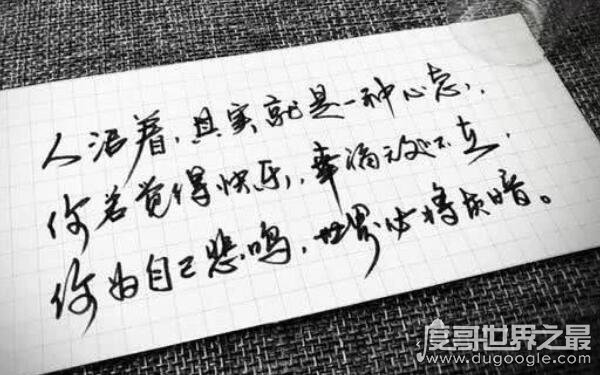 人活着,其实就是一种心态,
你若觉得快乐,幸福无处不在,
你为自己悲鸣,世界必将灰暗。
度哥世界之最
www.dugoogle.com